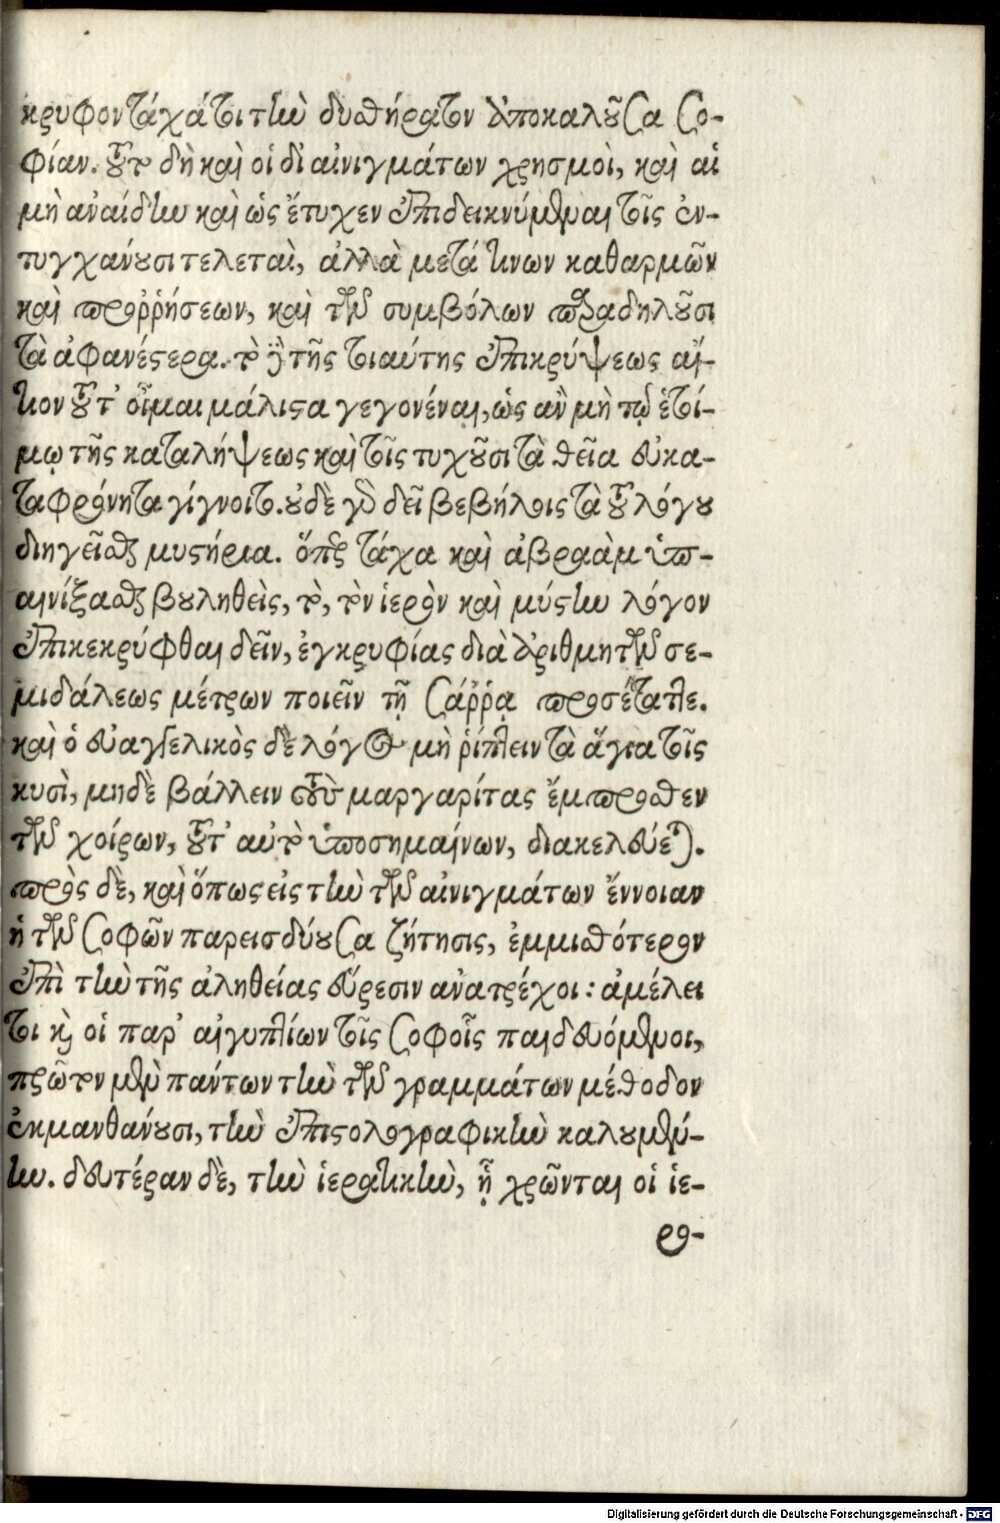 κρυφον τάχά τοι τὴν δυσθήρατον ἀποκαλοῦσα σο-
φίαν. τοῦτο δὴ καὶ οἱ δι αἰνιγμάτων χρησμοὶ, καὶ αἱ
μὴ ἀναίδην καὶ ὡς ἔτυχεν ἐπιδεικνύμεναι τοῖς ἐν-
τυγχάνουσι τελεταὶ, ἀλλὰ μετά τινων καθαρμῶν
καὶ προῤῥήσεων, καὶ τῶν συμβόλων παραδηλοῦσι
τὰ ἀφανέστερα. τὸ δὲ τῆς τοιαύτης ἐπικρύψεως αἴ-
τιον τοῦτ' οἶμαι μάλιστα γεγονέναι, ὡς ἂν μὴ τῷ ἑτοί-
μῳ τῆς καταλήψεως καὶ τοῖς τυχοῦσι τὰ θεῖα εὐκα-
ταφρόνητα γίγνοιτο. οὐδὲ γὰρ δεῖ βεβήλοις τὰ τοῦ λόγου
διηγεῖσθαι μυστήρια. ὅπερ τάχα καὶ ἀβραὰμ ὑπ-
αινίξασθαι βουληθεὶς, τὸ, τὸν ἱερὸν καὶ μύστην λόγον
ἐπικεκρύφθαι δεῖν, ἐγκρυφίας διὰ ἀριθμητῶν σε-
μιδάλεως μέτρων ποιεῖν τῇ Σάῤῥᾳ προσέταττε.
καὶ ὁ εὐαγγελικὸς δὲ λόγος μὴ ῥίπτειν τὰ ἅγια τοῖς
κυσὶ, μηδὲ βάλλειν τοὺς μαργαρίτας ἔμπροσθεν
τῶν χοίρων, τοῦτ' αὐτὸ ὑποσημαίνων, διακελεύεται.
πρὸς δὲ, καὶ ὅπως εἰς τὴν τῶν αἰνιγμάτων ἔννοιαν
ἡ τῶν σοφῶν παρεισδύουσα ζήτησις, ἐμμισθότερον
ἐπὶ τὴν τῆς ἀληθείας εὕρεσιν ἀνατρέχοι: ἀμέλει
τοι καὶ οἱ παρ' αἰγυπτίων τοῖς σοφοῖς παιδευόμενοι,
πρῶτον μὲν πάντων τὴν τῶν γραμμάτων μέθοδον
ἐκμανθάνουσι, τὴν ἐπιστολογραφικὴν καλουμέ-
νην. δευτέραν δὲ, τὴν ἱερατικὴν, ᾗ χρῶνται οἱ ἱε-
ρο-
Digitalisierung gefördert durch die Deutsche Forschungsgemeinschaft - DFG